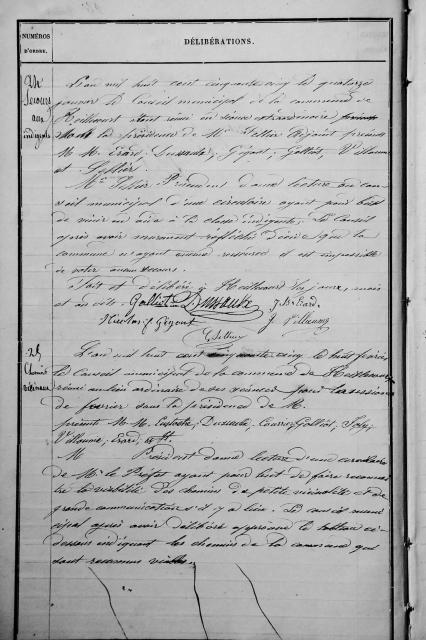 NUMÉROS
D'ORDRE.
DÉLIBÉRATIONS.
24
Secours
aux
indigents
L'an mil huit cent cinquante cinq le quatorze
janvier le Conseil municipal de la commune de
étant réuni en séance
la présidence de Mr adjoint présents
M M. Erard, Dussaulx, Gégout, Galliot, Villaume
et
Mr Président donne lecture au con-
seil municipal d'une circulaire ayant pour but
de venir en aide à la classe indigente. Le Conseil
après avoir mûrement réfléchi décide que la
commune n'ayant aucune ressource il est impossible
de voter aucun secours.
Fait et délibéré à les jour, mois
et an dits. Galliot Dussaulx J. Erard.
Nicolas Gégout J. Villaume
25
Chemins
vicinaux
L'an mil huit cent cinquante cinq le huit février
le Conseil municipal de la commune de
réuni au lieu ordinaire de ses séances pour la session
de février sous la présidence de M.
présents M. M. Dussaulx, Galliot,
Villaume, Erard, et
M Président donne lecture d'une circulaire
de Mr le Préfet ayant pour but de faire reconnaî
tre la viabilité des chemins de petite vicinalité et de
grande communication s'il y a lieu. Le conseil muni
cipal après avoir délibéré approuve le tableau ci-
dessous indiquant les chemins de la commune qui
sont reconnus